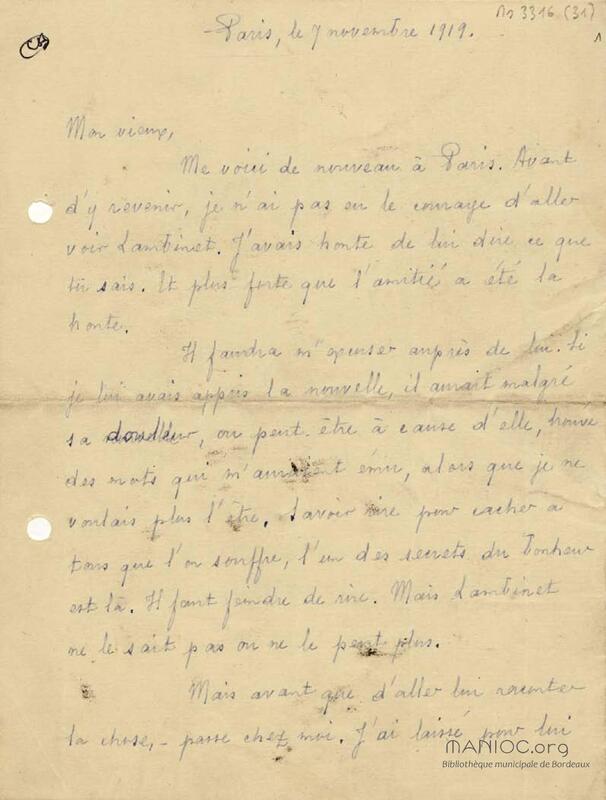 Ms 3316 (31)
1
Paris, le 7 novembre 1919.
Mon vieux,
Me voici de nouveau à Paris. Avant
d'y revenir, je n'ai pas eu le courage d'aller
voir Lambinet. J'avais honte de lui dire ce que
tu sais. Et plus forte que l'amitié a été la
honte.
Il faudra m'excuser auprès de lui. Si
je lui avais appris la nouvelle, il aurait malgré
sa douleur, ou peut-être à cause d'elle, trouvé
des mots qui m'auraient ému, alors que je ne
voulais plus l'être. Savoir rire pour cacher à
tous que l'on souffre, l'un des secrets du bonheur
est là. Il faut feindre de rire. Mais Lambinet
ne le sait pas ou ne le peut plus.
Mais avant que d'aller lui raconter
la chose, - passe chez moi. J'ai laissé pour lui
MANIOC.org
Bibliothèque municipale de Bordeaux